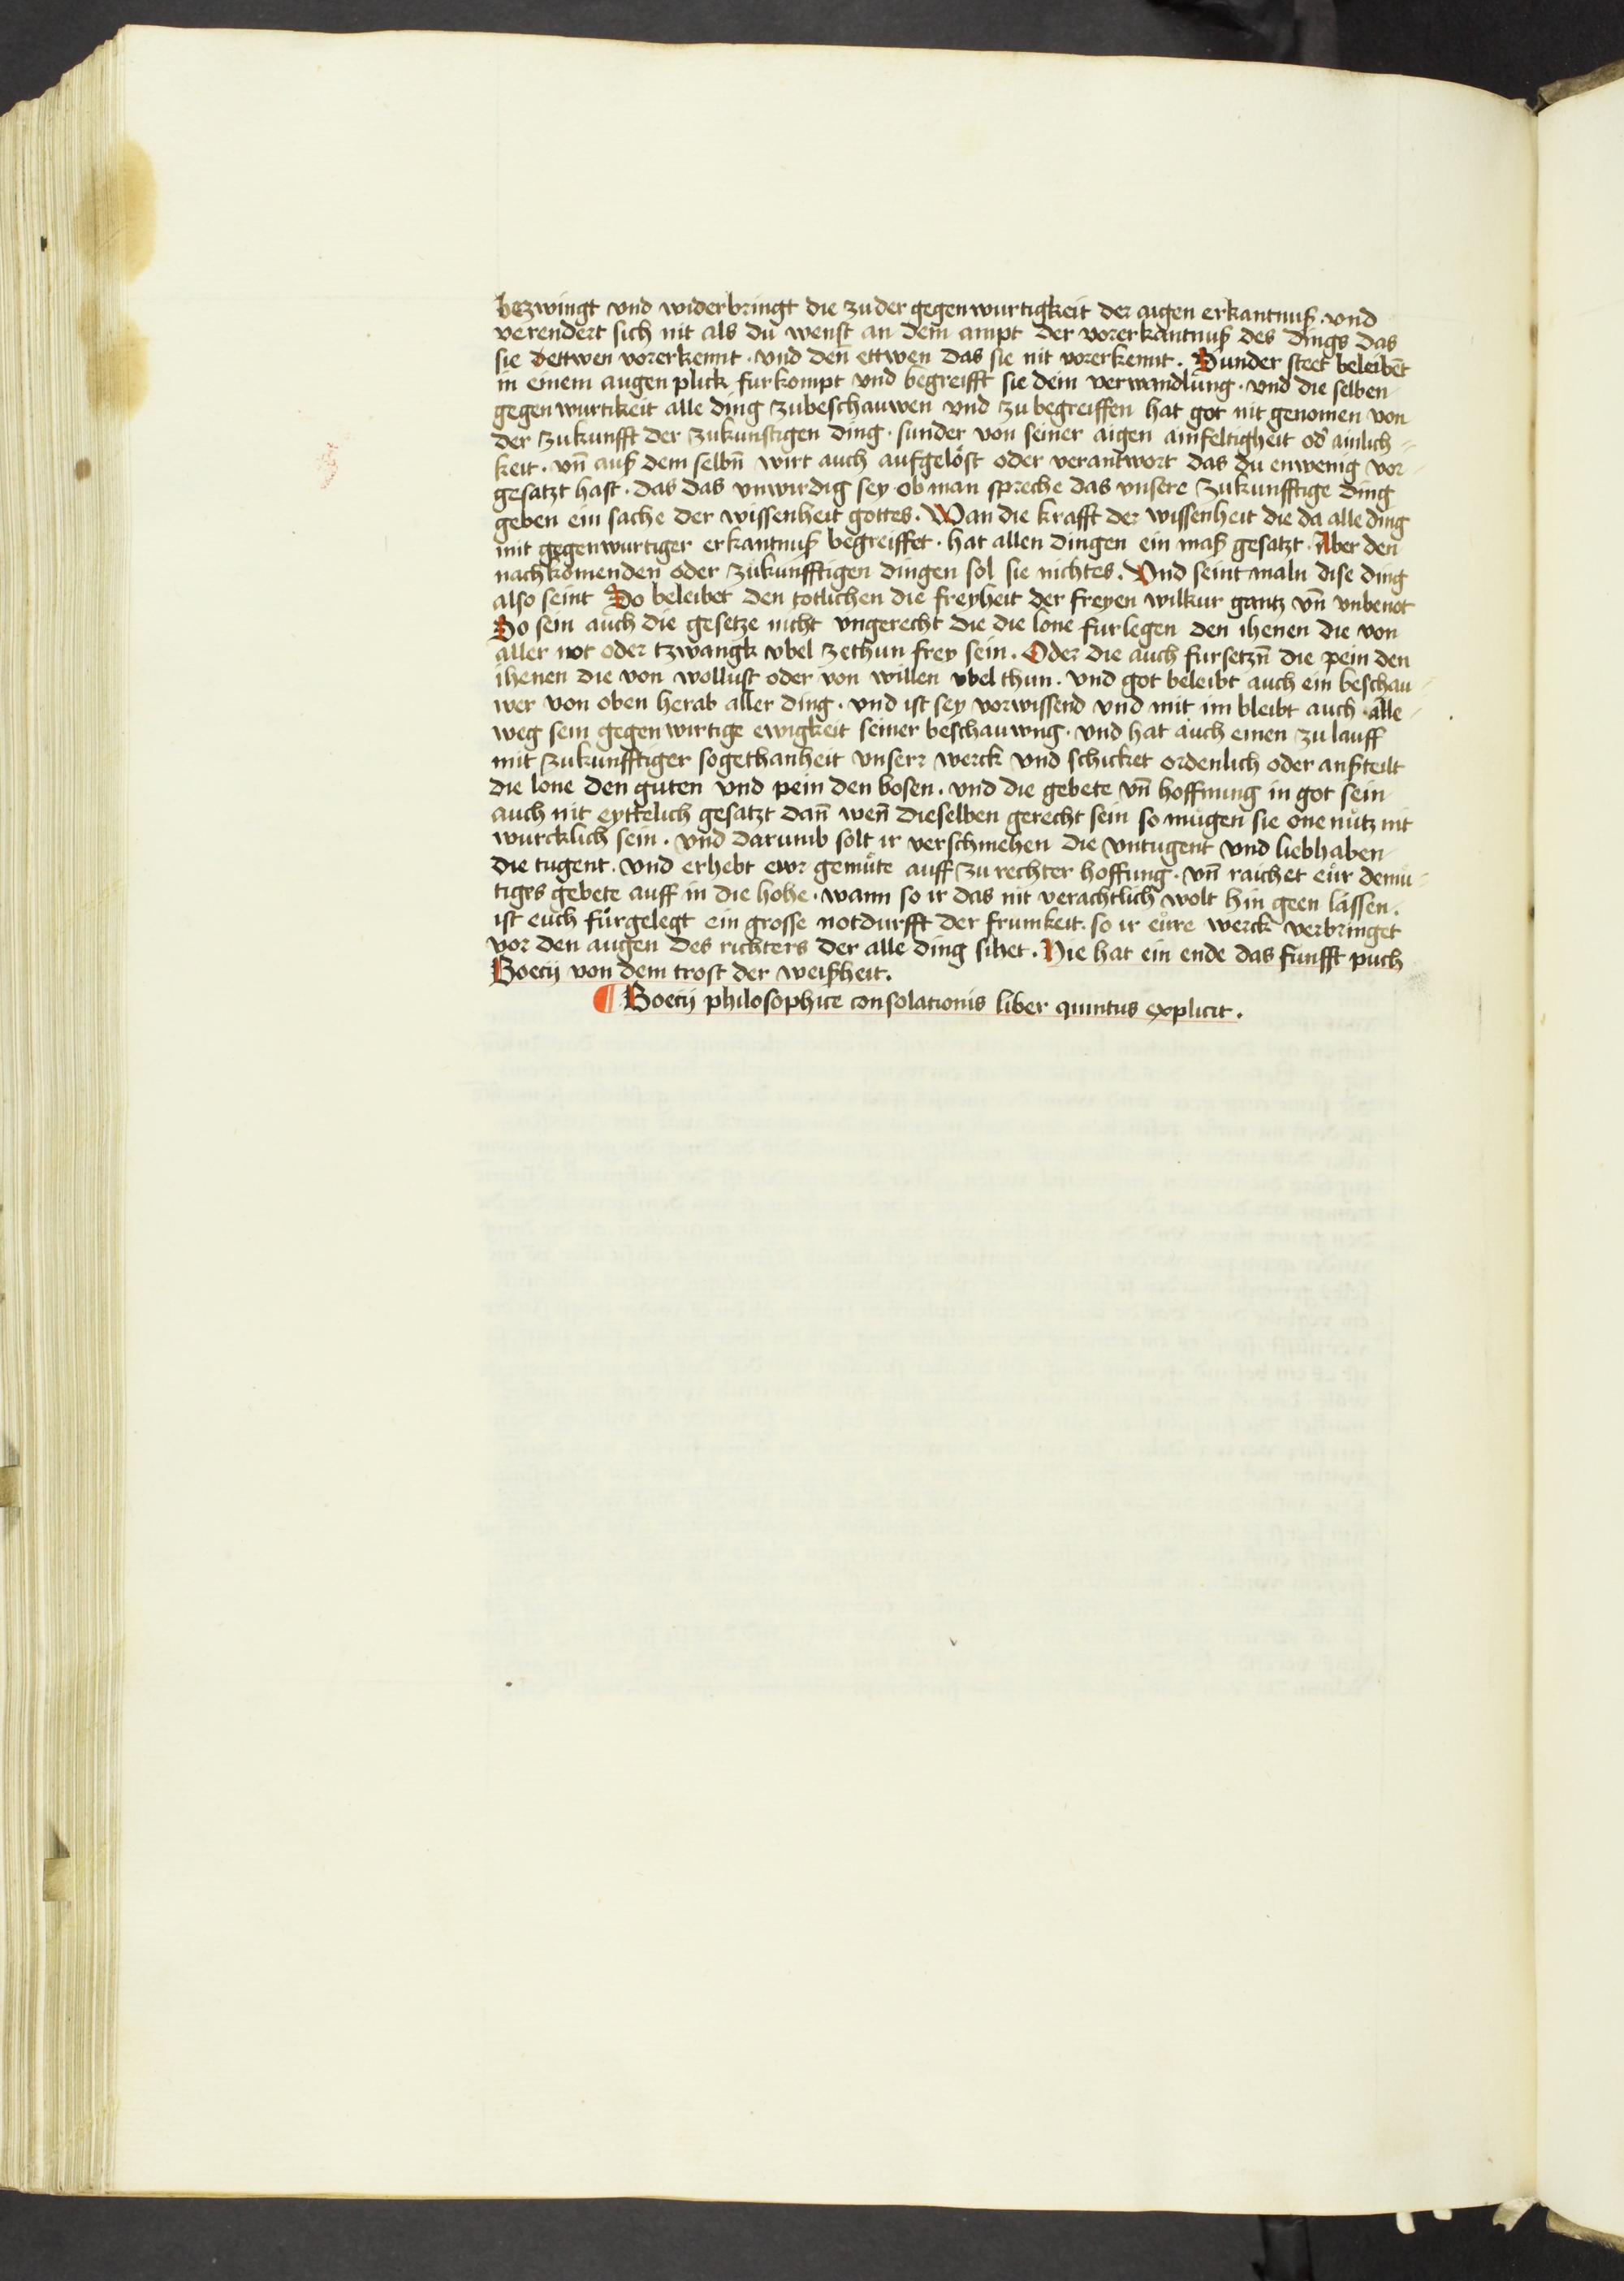 bezwingt vnd widerbringt die zu der gegenwurtigkeit der aigen erkantnuß. vnd
verendert sich nit als du wenst an dem ampt der vorerkantnuß des dings das
sie ettwen vorerkennt. vnd den̄ ettwen das sie nit vorerkennt. Sunder steet beleibēt
in einem augen plick furkompt vnd begreifft sie dein verwandlung. vnd die selben
gegenwurtikeit alle ding zubeschauwen vnd zu begreiffen hat got nit genomen von
der zukunfft der zukunftigen ding. sunder von seiner aigen ainfeltigheit od' ainlich-
keit. vn̄ auß dem selbn̄ wirt auch aufgelöst oder verantwort das du enwenig vor-
gesatzt hast. das das vnwirdig sey ob man spreche das vnsere zukunfftige ding
geben ein sache der wissenheit gottes. Wan die krafft der wissenheit die da alle ding
mit gegenwurtiger erkantnuß begreiffet. hat allen dingen ein maß gesatzt. Aber den
nachkomenden oder zukunfftigen dingen sol sie nichtes. Vnd seint maln dise ding
also seint So beleibet den totlichen die freyheit der freyen wilkur gantz vn̄ vnbenot
So sein auch die gesetze nicht vngerecht die die lone furlegen den ihenen die von
aller not oder tzwangk vbel zethun frey sein. Oder die auch fursetzn̄ die pein den
ihenen die von wollust oder von willen vbel thun. vnd got beleibt auch ein beschau-
wer von oben herab aller ding. vnd ist sey vorwissend vnd mit im bleibt auch alle-
weg sein gegenwirtige ewigkeit seiner beschauwng. vnd hat auch einen zu lauff
mit zukunfftiger sogethanheit vnserr werck vnd schicket ordenlich oder außteilt
die lone den guten vnd pein den bosen. vnd die gebete vn̄ hoffnung in got sein
auch nit eyttelich gesatzt dan̄ wen̄ dieselben gerecht sein so mugen sie one nutz nit
wurcklich sein. vnd darumb solt ir verschmehen die vntugent vnd liebhaben
die tugent. vnd erhebt ewr gemüte auff zu rechter hoffung. vn̄ raichet eur demu-
tiges gebete auff in die hohe. wann so ir das nit verachtlich wolt hin geen lassen.
ist euch fürgelegt ein grosse notdurfft der frumkeit. so ir eure werck verbringet
vor den augen des richters der alle ding sihet. Hie hat ein ende das funfft puch
Boecij von dem trost der weißheit.
¶ Boecij philosophice consolationis liber quintus explicit.